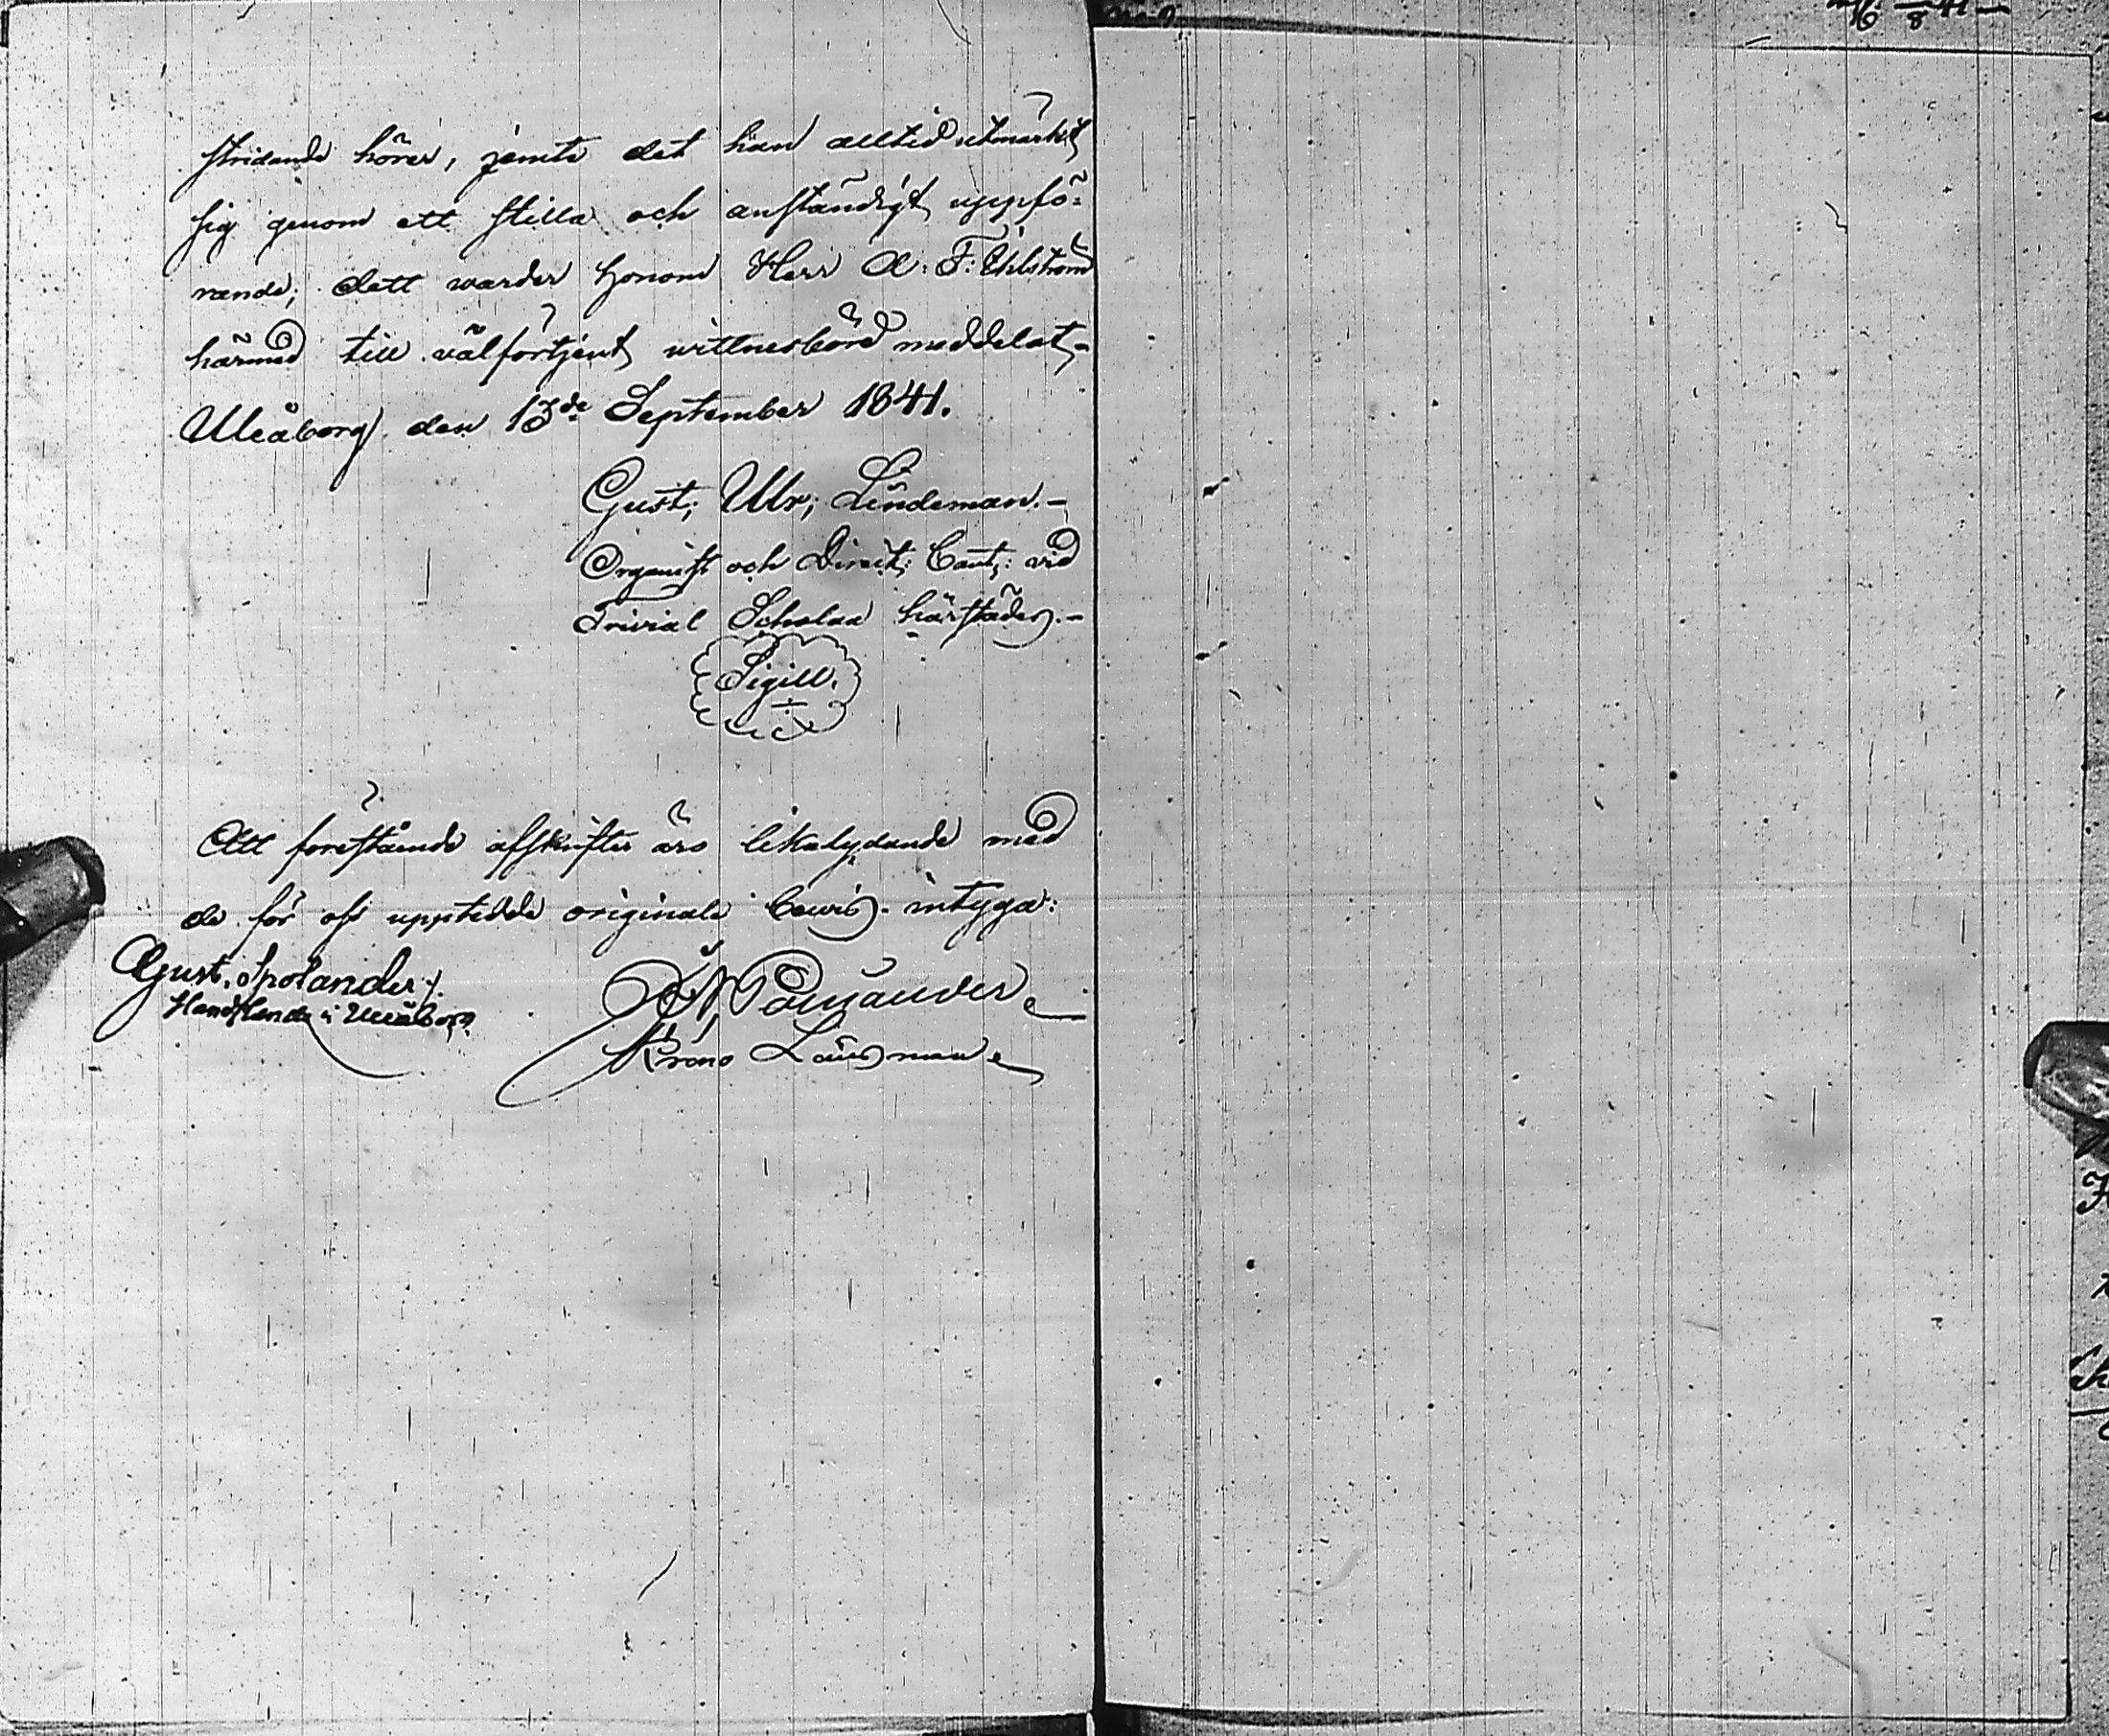 stridande hörer, jemte det han alltid utmärkt
sig genom ett stilla och anständigt uppfö-
rande; dett warder honom Herr A: F: Ehlström
härmed till välförtjent wittnesbörd meddelat,-
Uleåborg den 13de September 1841.
Gust; Ulr; Lindeman.-
Organist och Direct; Cant; vid
Trivial Scholan härstädes.-
Sigill.
Att förestående afskrifter äro likalydande med
de för oss uppteddе originala bewis. intyga:
Gust. Spolander.
Handlande i Uleåborg
Pomander
Krono Länsman